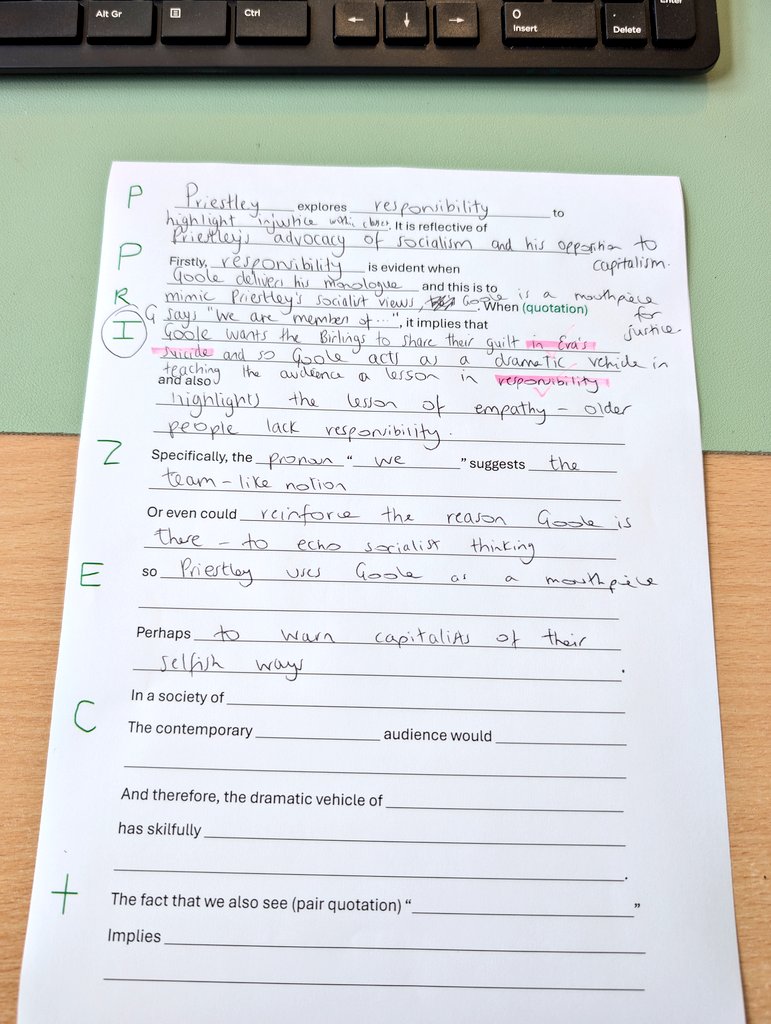 Alt Gr
Ctrl
←
↓
→
0
Insert
.
Delete
Enter
P Priestley explores responsibility to
highlight injustice within class. It is reflective of
Priestley's advocacy of socialism and his opposition to
capitalism.
P Firstly, responsibility is evident when
Goole delivers his monologue and this is to
R mimic Priestley's socialist views, Goole is a mouthpiece
for justice
. When (quotation)
I G says "We are member of...", it implies that
Goole wants the Birlings to share their guilt in Eva's
suicide and so Goole acts as a dramatic vehicle in
teaching the audience a lesson in responsibility
and also
highlights the lesson of empathy – older
people lack responsibility.
Z Specifically, the pronoun "we" suggests the
team-like notion
Or even could reinforce the reason Goole is
there – to echo socialist thinking
E so Priestley uses Goole as a mouthpiece
Perhaps to warn capitalists of their
selfish ways.
C In a society of
The contemporary audience would
And therefore, the dramatic vehicle of
has skilfully
.
+ The fact that we also see (pair quotation) " "
Implies